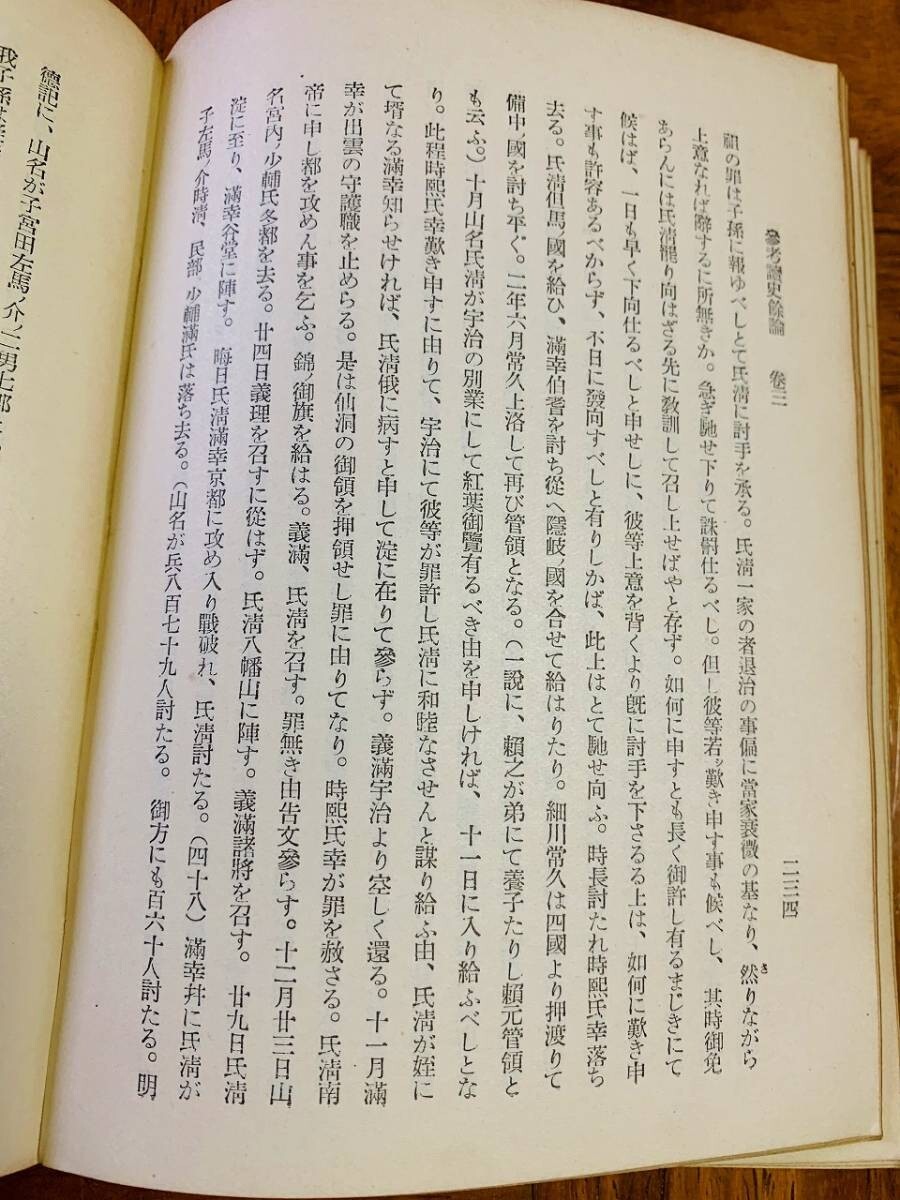 參考讀史餘論　卷三
二三四
祖の罪は子孫に報ゆべしとて氏淸に討手を承る。氏淸一家の者退治の事偏に當家衰微の基なり、然りながら
き
上意なれば辭するに所無きか。急ぎ馳せ下りて誅罸仕るべし。但し彼等若ッ歎き申す事も候べし、其時御免
あらんには氏淸罷り向はざる先に敎訓して召し上せばやと存ず。如何に申すとも長く御許し有るまじきにて
候はば、一日も早く下向仕るべしと申せしに、彼等上意を背くより旣に討手を下さるる上は、如何に歎き申
す事も許容あるべからず、不日に發向すべしと有りしかば、此上はとて馳せ向ふ。時長討たれ時熙氏幸落ち
去る。氏淸但馬ノ國を給ひ、滿幸伯耆を討ち從へ隱岐ノ國を合せて給はりたり。細川常久は四國より押渡りて
備中ノ國を討ち平ぐ。二年六月常久上洛して再び管領となる。（一說に、賴之が弟にて養子たりし賴元管領と
も云ふ。）十月山名氏淸が宇治の別業にして紅葉御覽有るべき由を申しければ、十一日に入り給ふべしとな
り。此程時熙氏幸歎き申すに由りて、宇治にて彼等が罪許し氏淸に和睦なさせんと謀り給ふ由、氏淸が姪に
て壻なる滿幸知らせければ、氏淸俄に病すと申して淀に在りて參らず。義滿宇治より空しく還る。十一月滿
幸が出雲の守護職を止めらる。是は仙洞の御領を押領せし罪に由りてなり。時熙氏幸が罪を赦さる。氏淸南
帝に申し都を攻めん事を乞ふ。錦ノ御旗を給はる。義滿、氏淸を召す。罪無き由告文參らす。十二月廿三日山
名宮內ノ少輔氏冬都を去る。廿四日義理を召すに從はず。氏淸八幡山に陣す。義滿諸將を召す。　廿九日氏淸
淀に至り、滿幸谷堂に陣す。　晦日氏淸滿幸京都に攻め入り戰破れ、氏淸討たる。（四十八）滿幸幷に氏淸が
子左馬ノ介時淸、民部ノ少輔滿氏は落ち去る。（山名が兵八百七十九人討たる。　御方にも百六十人討たる。明
德記に、山名が子宮田左馬ノ介ノ二男七郎